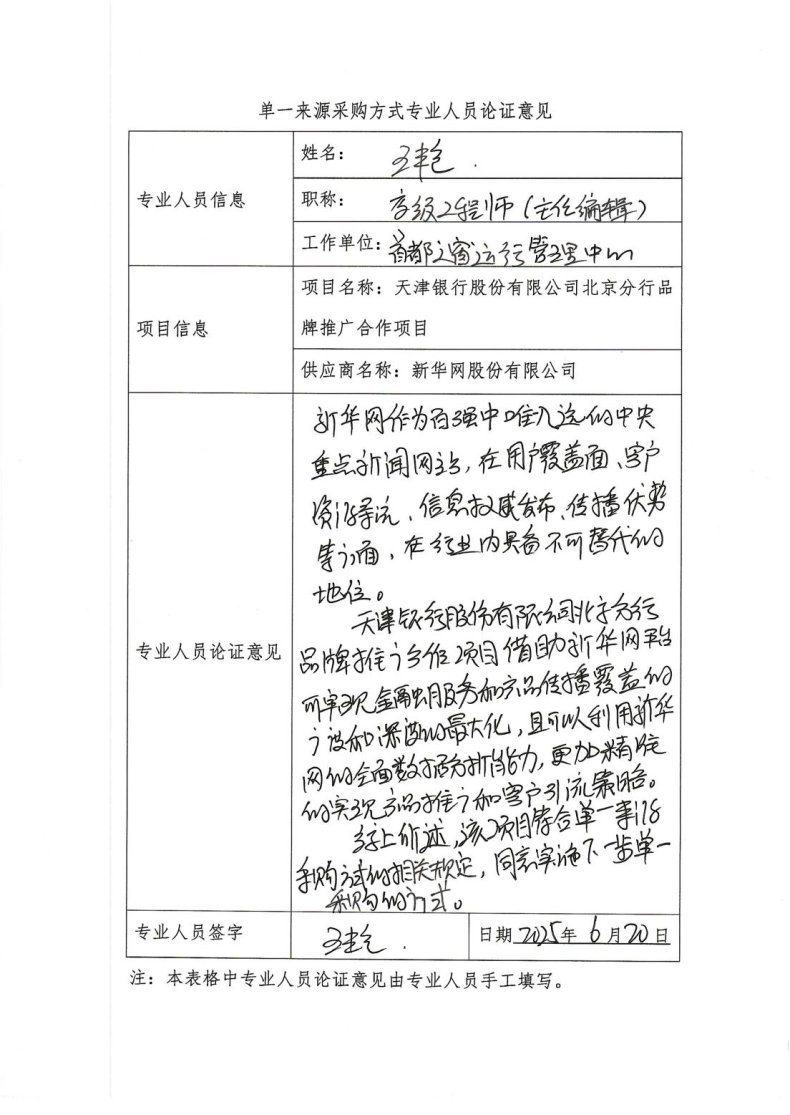 单一来源采购方式专业人员论证意见
专业人员信息
姓名：
职称：高级工程师（主任编辑）
工作单位：首都之窗运行管理中心
项目信息
项目名称：天津银行股份有限公司北京分行品
牌推广合作项目
供应商名称：新华网股份有限公司
专业人员论证意见
新华网作为百强中唯一入选的中央
重点新闻网站，在用户覆盖面、客户
资源导流、信息权威发布、传播优势
等方面，在行业内具备不可替代的
地位。
天津银行股份有限公司北京分行
品牌推广合作项目借助新华网平台
可实现金融服务和产品传播覆盖的
广度和深度的最大化，且可以利用新华
网的全面数据分析能力，更加精准
的实现产品推广和客户引流策略。
综上所述，该项目符合单一来源
采购方式的相关规定，同意实施下一步单一
采购的方式。
专业人员签字
日期 2025年 6月20日
注：本表格中专业人员论证意见由专业人员手工填写。